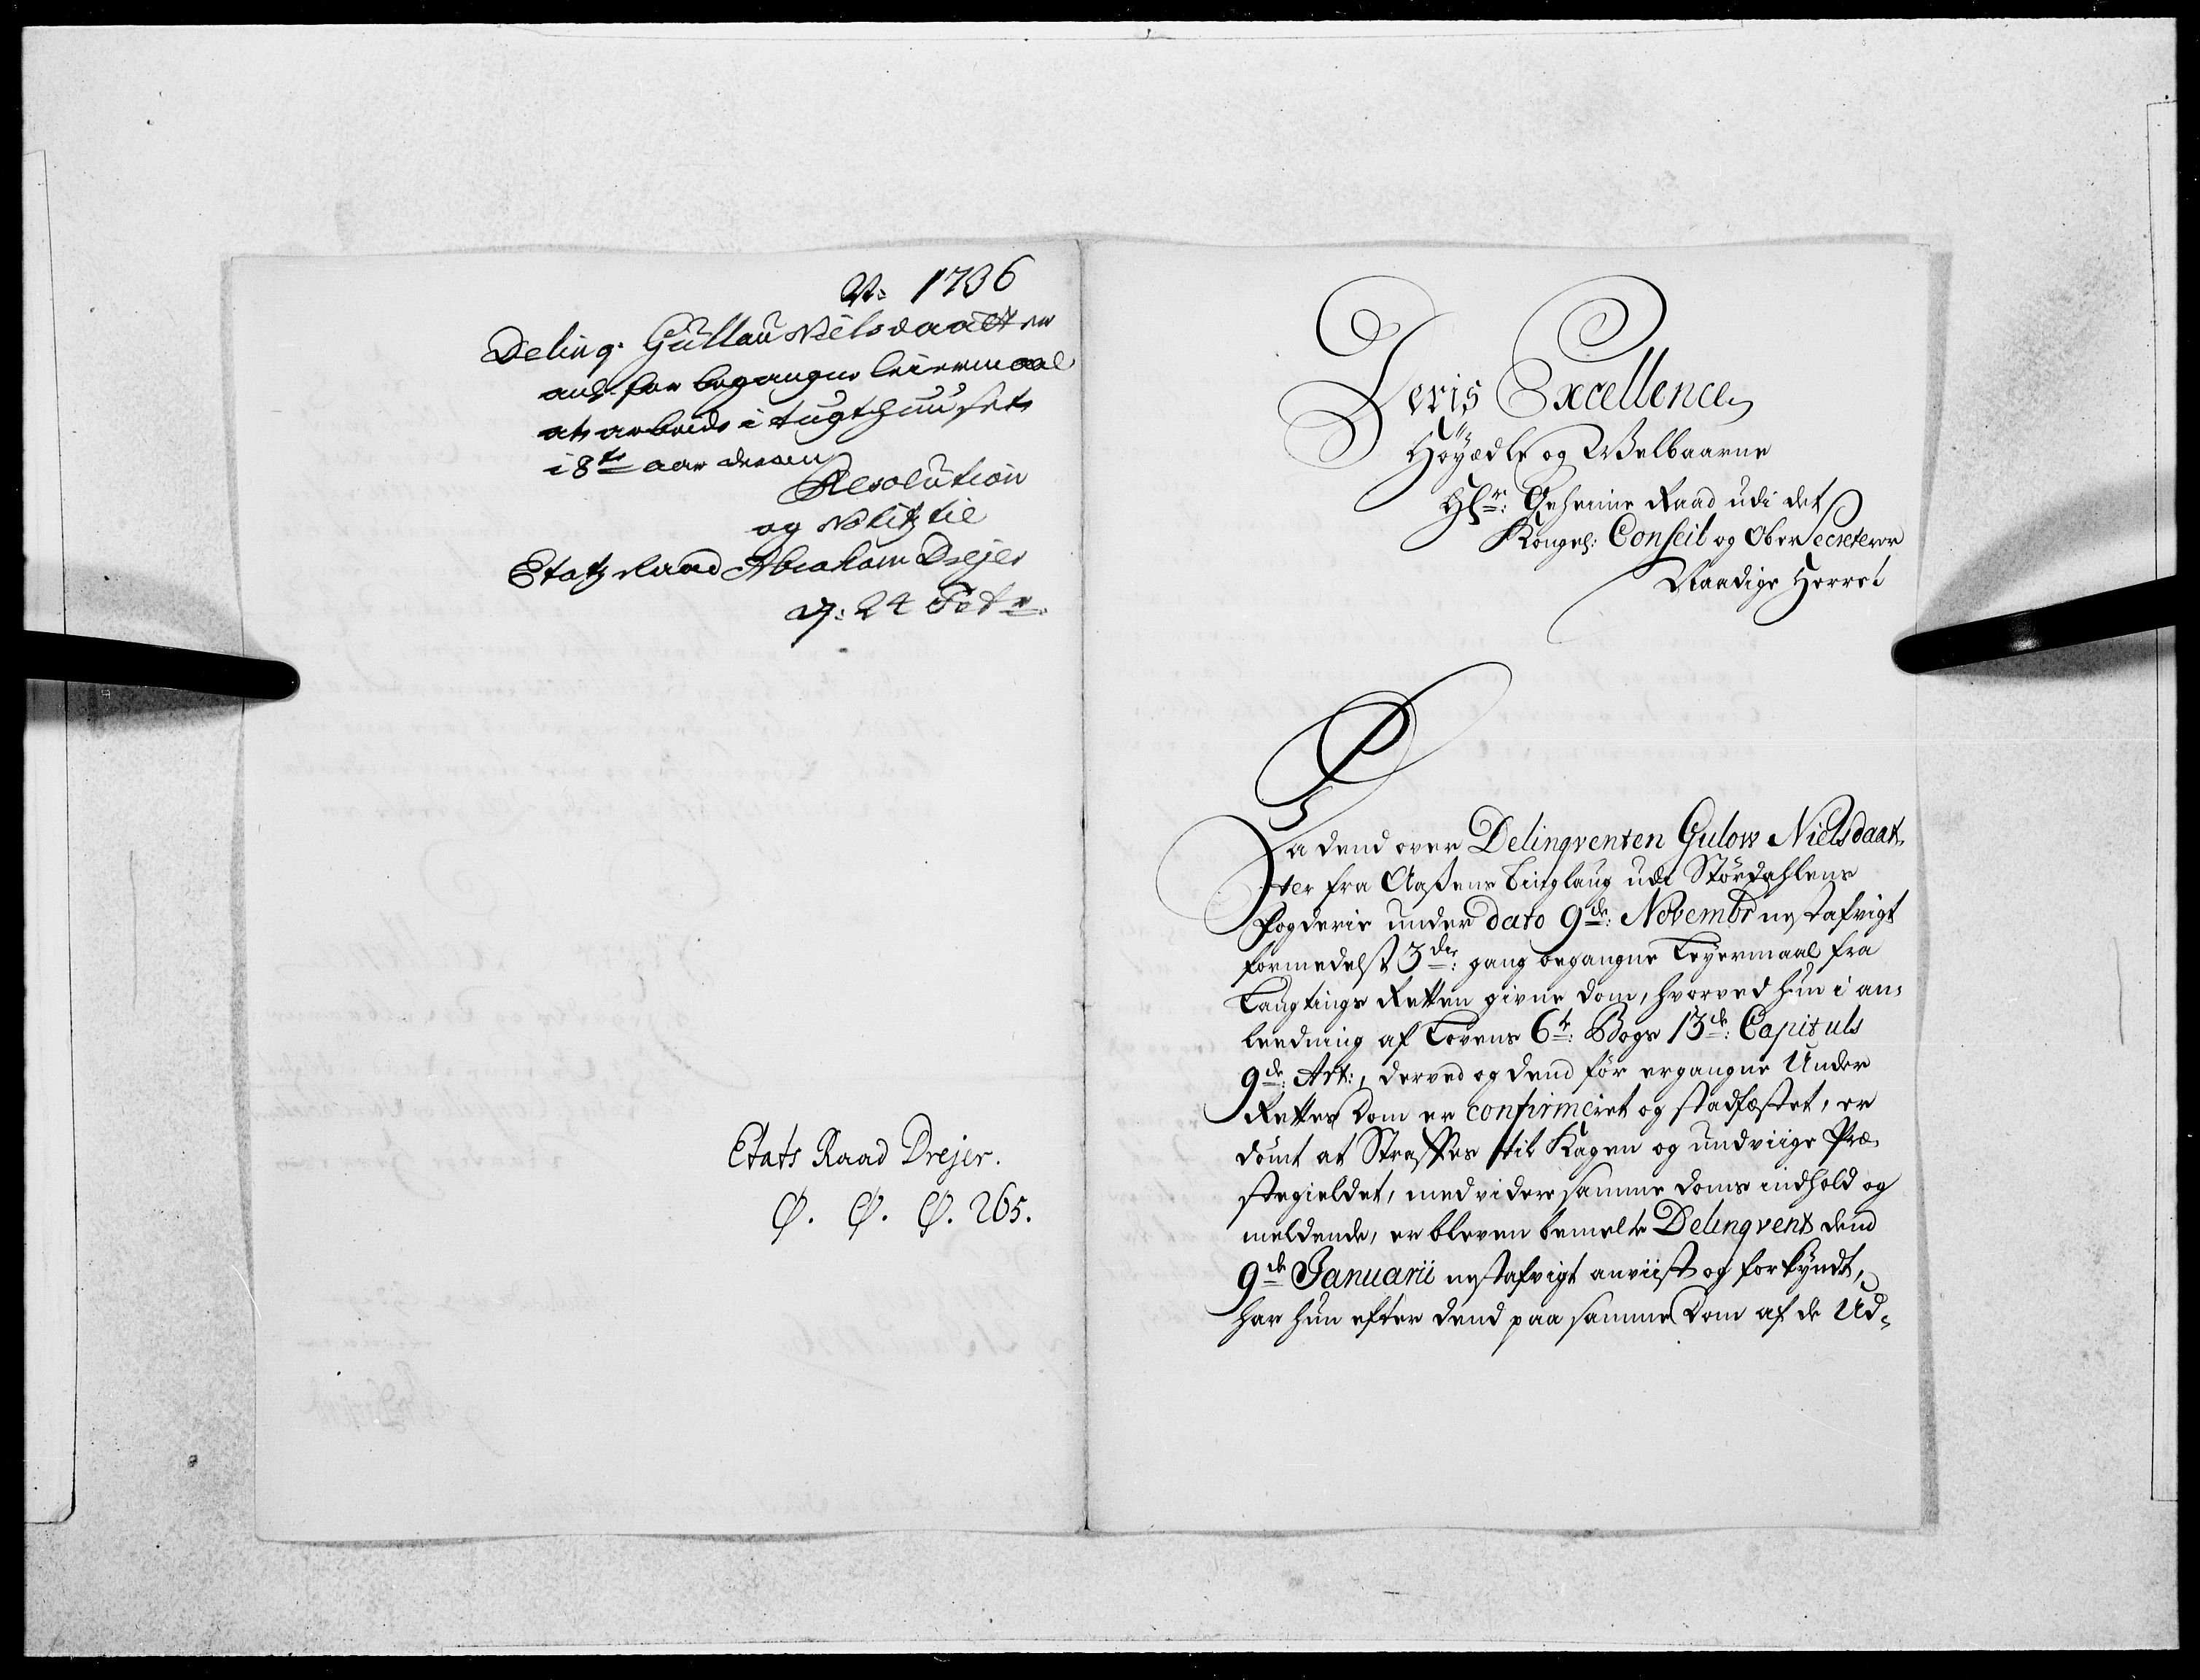 A: 1736
Delinq: Gullau Nielsdaatter
anl: for begangne leiermaal
at arbeide i tugthuuset
i 8te aar
Resolution
og Notitz til
Etatz Raad Abraham Drejer
d: 24 Febr:
Etats Raad Drejer.
P. P. P. 265.
Deris Excellence
Höÿædle og Welbaarne
Hr: Geheime Raad udi det
Kongel: Conseil og Ober Secreterer
Naadige Herre!
Da dend over Delinqventen Gulow Nielsdaat,
ter fra Aaßens Tinglaug udi Størdahlens
Fogderie under dato 9de: Novembr nestafvigt
formedelst 3die: gang begangne Leÿermaal fra
Laugtings Retten givne dom, hvorved hun i an,
leedning af Lovens 6te: Bogs 13de: Capituls
9de: Art:, derved og dend før ergangne Under
Rettes Dom er confirmeret og stadfæstet, er
dömt at Straffes til Kagen og undviige Præ,
stegieldet, med videre samme doms indhold og
meldende, er bleven bemelte Delinqvent dend
9de Januarii nestafvigt anviist og forkyndt,
har hun efter dend paa samme Dom af de Ud,